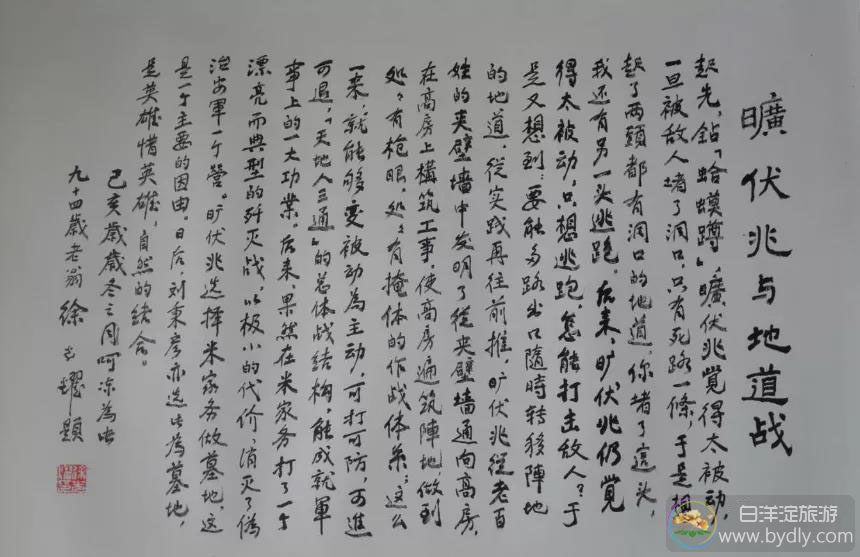 曠伏兆与地道战
起先，鉆「蛤蟆蹲」，曠伏兆覺得太被动，
一旦被敌人堵了洞口，只有死路一條，于是想
起了两頭都有洞口的地道，你堵了這头，
我还有另一头逃跑。后来，旷伏兆仍觉
得太被动，只想逃跑，怎能打击敌人？于
是又想到：要能多路出口隨時转移陣地
的地道，從实践再往前推，旷伏兆從老百
姓的夹壁墙中发明了從夹壁墙通向高房，
在高房上構筑工事，使高房遍筑陣地，做到
处々有枪眼，处々有掩体的作战体系；这么
一来，就能够变被动為主动，可打可防，可進
可退，「天地人三通」的总体战结构，能成就軍
事上的一大功業。后来，果然在米家务打了一个
漂亮而典型的歼灭战，以极小的代价，消灭了偽
治安軍一个营。旷伏兆选择米家务做墓地，这
是一个主要的因由。日后，刘秉彦亦选此為墓地，
是英雄惜英雄，自然的结合。
己亥歲歲冬之月呵凍為此
九十四歲老翁 徐光耀題
白洋淀旅游
www.bydly.com